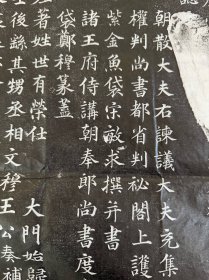 朝散大夫右諫議大夫充集
權判尚書都省判祕閣上護
紫金魚袋宋敏求撰并書
諸王府侍講朝奉郎尚書度
袋鄭穆篆蓋
者姓世有榮仕　大門始歸
士後繇其甥丞相文穆王公奏補